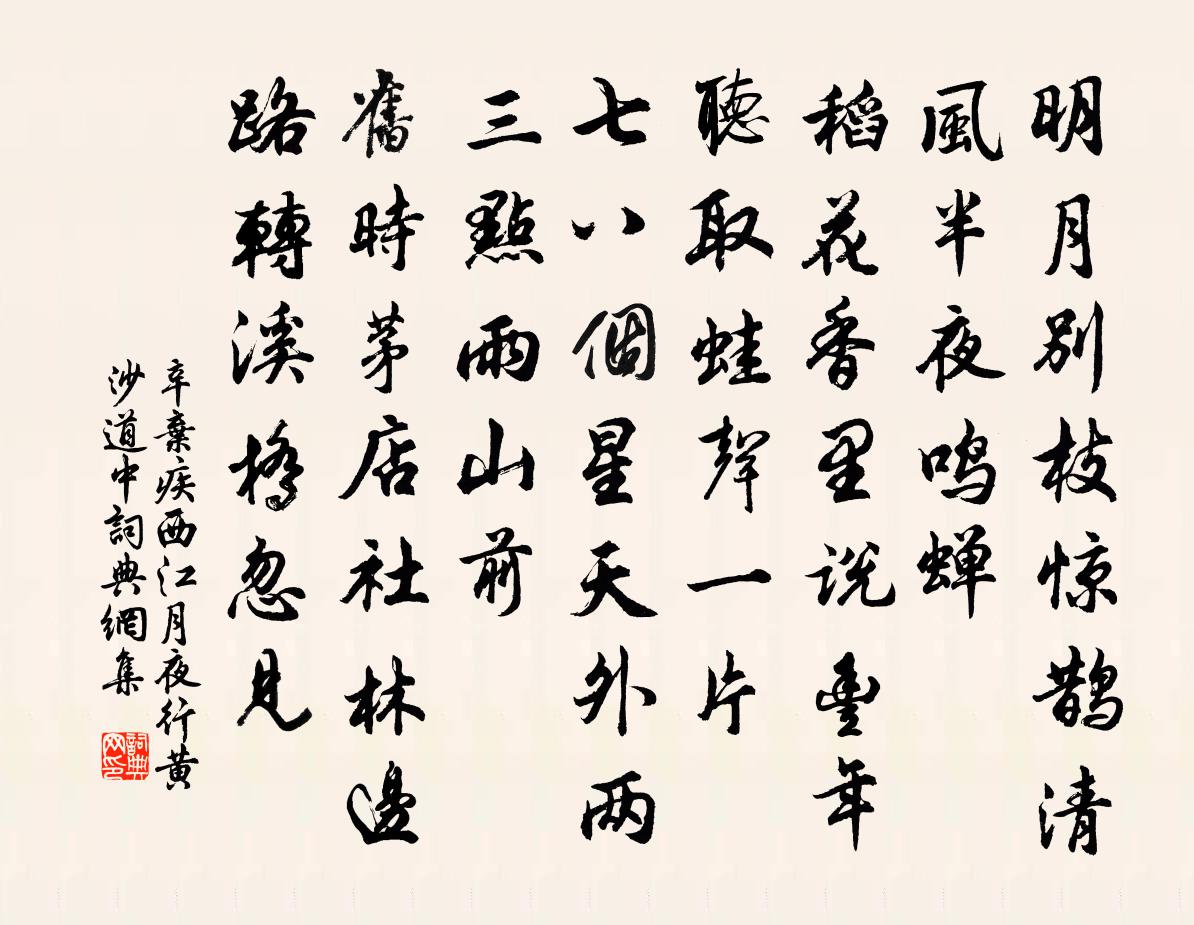 明月别枝惊鹊清
風半夜鸣蝉
稻花香里説豐年
聽取蛙聲一片
七八個星天外两
三點雨山前
舊時茅店社林邊
路轉溪橋忽見
辛棄疾西江月夜行黄
沙道中詞典網集
詞典
网印